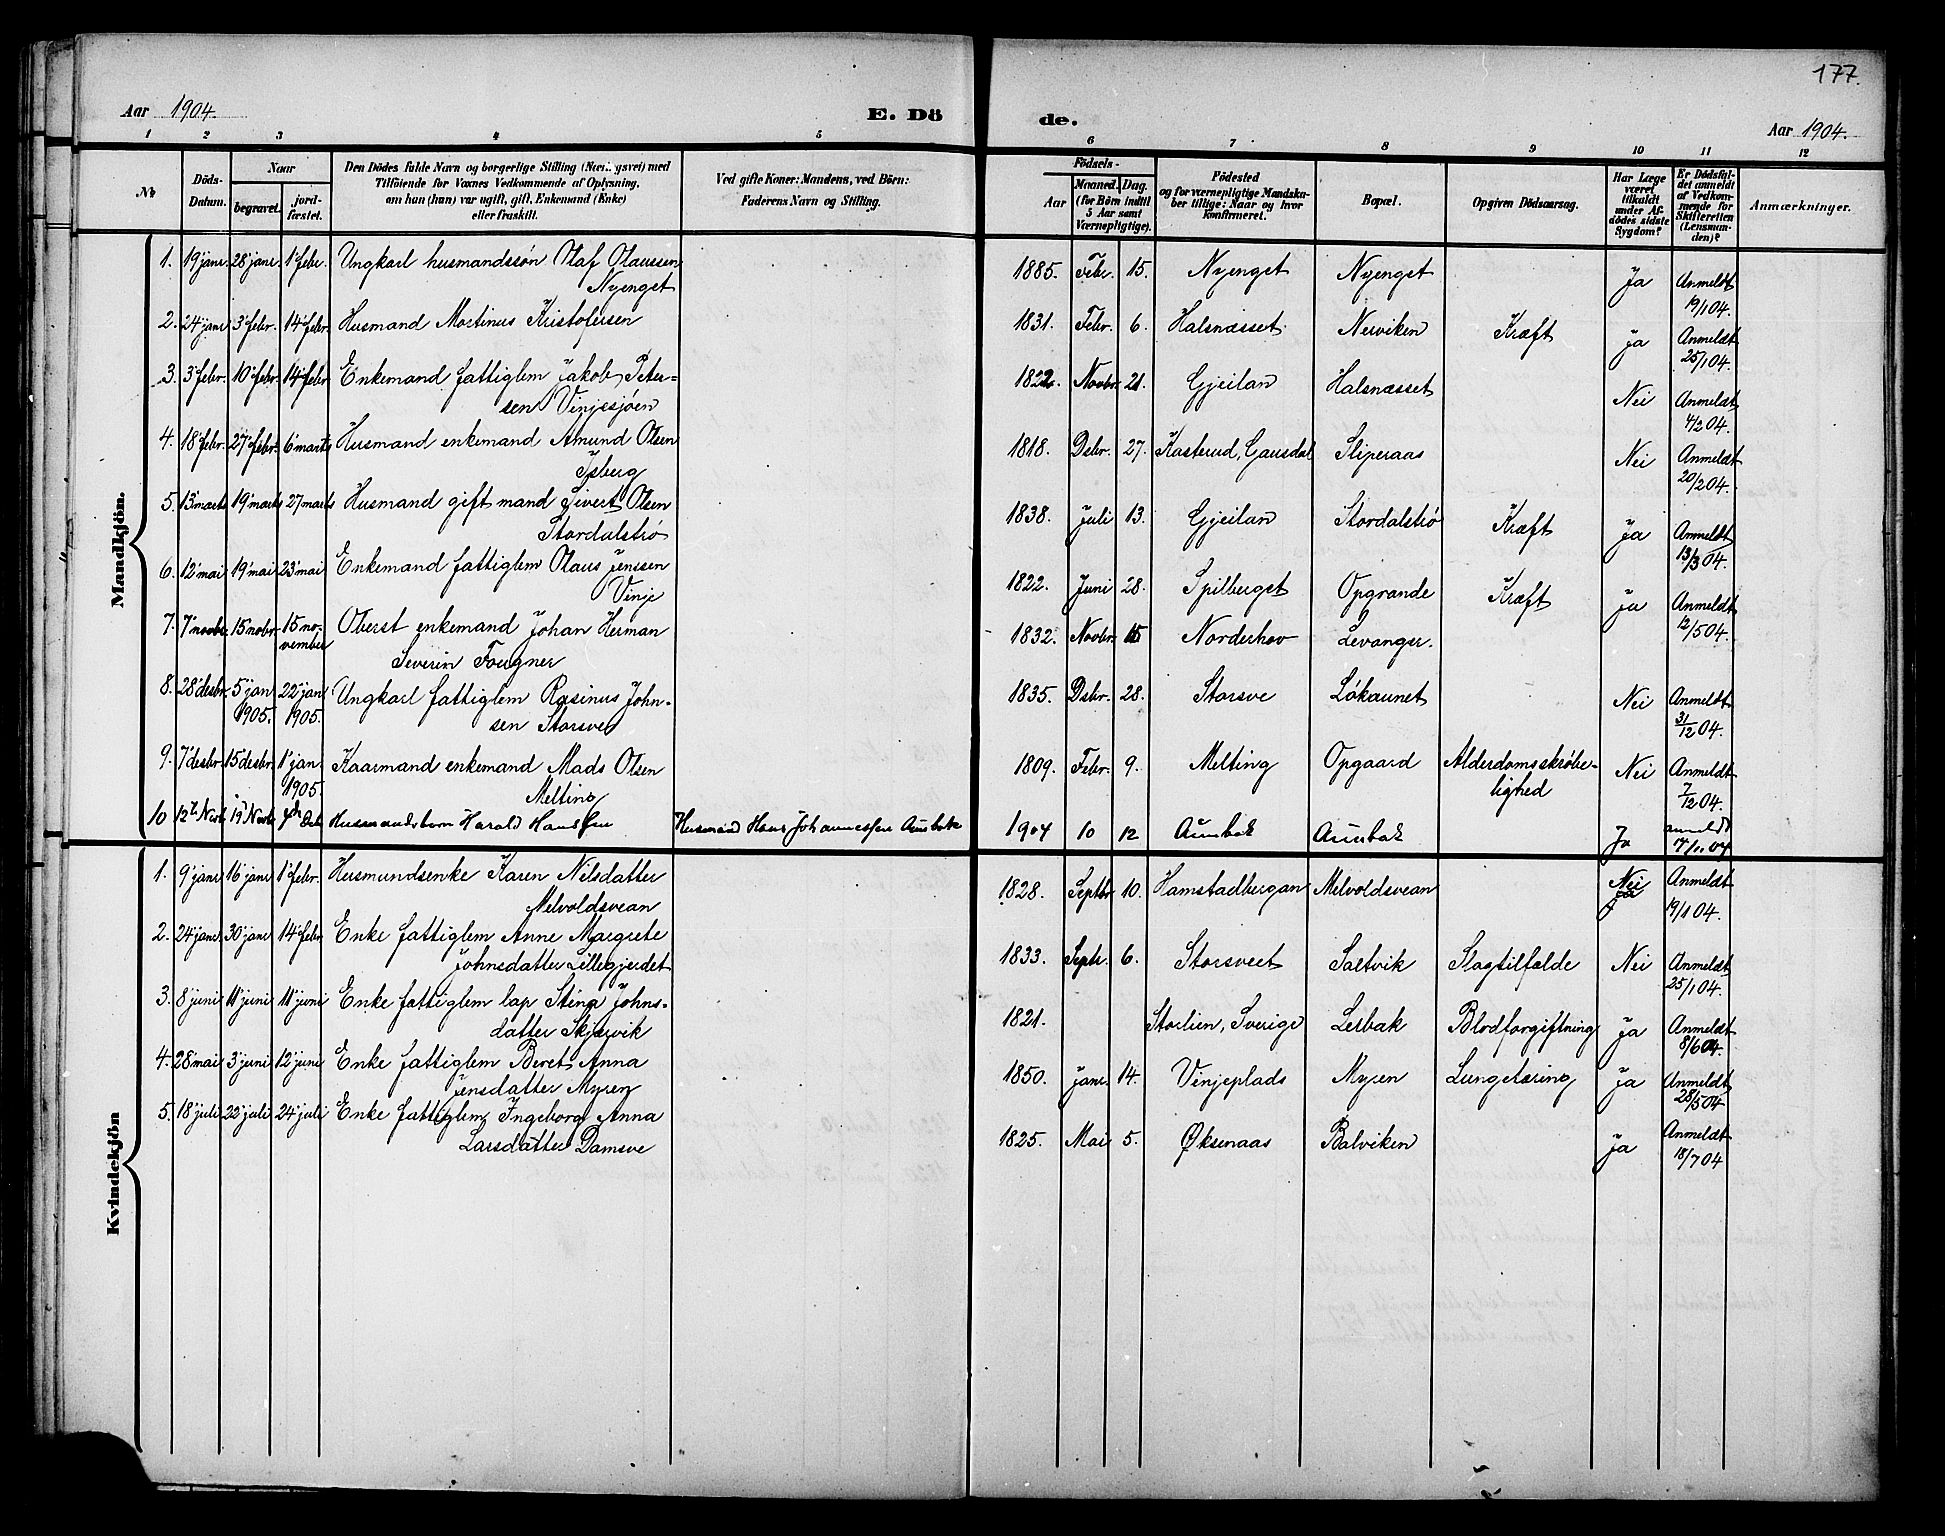 177.
Aar 1904. E. Dö de. Aar 1904.
1 2 3 4 5 6 7 8 9 10 11 12
No. Döds-Datum. Naar begravet. jordfæstet. Den Dödes fulde Navn og borgerlige Stilling (Næringsvei) med Tilföiende for Voxnes Vedkommende af Oplysning, om han (hun) var ugift, gift, Enkemand (Enke) eller fraskilt. Ved gifte Koner: Mandens, ved Börn: Faderens Navn og Stilling. Födsels- Aar Maaned. Dag. (for Börn indtil 5 Aar samt Værnepligtige). Födested og for værnepligtige Mandskaber tillige: Naar og hvor konfirmeret. Bopæl. Opgiven Dödsaarsag. Har Læge været tilkaldt under Afdödes sidste Sygdom? Er Dödsfaldet anmeldt af Vedkommende for Skifteretten (Lensmanden)? Anmærkninger.
Mandkjön.
1. 19 janr. 28 janr. 1 febr. Ungkarl husmandssön Olaf Olaussen Nyenget 1885. Febr. 15. Nyenget Nyenget Ja Anmeldt 19/1 04.
2. 24 janr 3 febr. 14 febr. Husmand Martinus Kristofersen 1831. Febr. 6. Halsnæsset Nerviken Kræft Ja Anmeldt 25/1 04.
3. 3 febr. 10 febr. 14 febr Enkemand fattiglem Jakob Petersen Vinjesjøen 1822. Novbr. 21. Gjeilan Halsnæsset Nei Anmeldt 4/2 04.
4. 18 febr. 27 febr. 6 marts Husmand enkemand Amund Olsen Isberg 1818. Dsbr. 27. Kasterud, Gausdal Sliperaas Nei Anmeldt 20/2 04.
5. 13 marts 19 marts 27 marts Husmand gift mand Sivert Olsen Stordalstrø 1838. Juli 13. Gjeilan Stordalstrø Kræft Ja Anmeldt 13/3 04.
6. 12 mai 19 mai 23 mai Enkemand fattiglem Olaus Jenssen Vinje 1822. Juni 28. Spilberget Opgrande Kræft Ja Anmeldt 12/5 04.
7. 7 novbr. 15 nobr. 15 november Oberst enkemand Johan Herman Severin Fougner 1832. Novbr. 15 Norderhov Levanger.
8. 28 desbr. 5 jan 1905. 22 jan 1905. Ungkarl fattiglem Rasinus Johnsen Storsve 1835. Dsbr. 28. Storsve Løkaunet Nei Anmeldt 31/12 04.
9. 7 desbr. 15 desbr. 1 jan 1905. Kaarmand enkemand Mads Olsen Melting 1809. Febr. 9. Melting Opgaard Alderdomsskrøbelighed Nei Anmeldt 7/12 04.
10 Husmandsbarn Harald Hansen Husmand Hans Johannessen Aunbak 1904 10 12 Aunbak Aunbak Ja anmeldt
Kvindekjön
1. 9 janr 16 janr 1 febr. Husmandsenke Karen Nilsdatter Melvoldsvean 1828. Septbr 10. Hamstadbergan Melvoldsvean Nei Anmeldt 19/1 04.
2. 24 janr. 30 janr 14 febr. Enke fattiglem Anne Margrete Johnsdatter Lillegjerdet 1833. Septr. 6. Storsveet Saltvik Slagtilfælde Nei Anmeldt 25/1 04.
3. 8 juni 11 juni 11 juni Enke fattiglem lap Stina Johnsdatter Skjærvik 1821. Storlien, Sverige Lerbak Blodforgiftning Ja Anmeldt 8/6 04.
4. 28 mai 3 juni 12 juni Enke fattiglem Beret Anna Jensdatter Myren 1850. Janr. 14. Vinjeplads Myren Lungetæring Ja Anmeldt 28/5 04
5. 18 juli 23 juli 24 juli Enke fattiglem Ingeborg Anna Larsdatter Damsve 1825. Mai 5. Øksenaas Balviken Ja Anmeldt 18/7 04